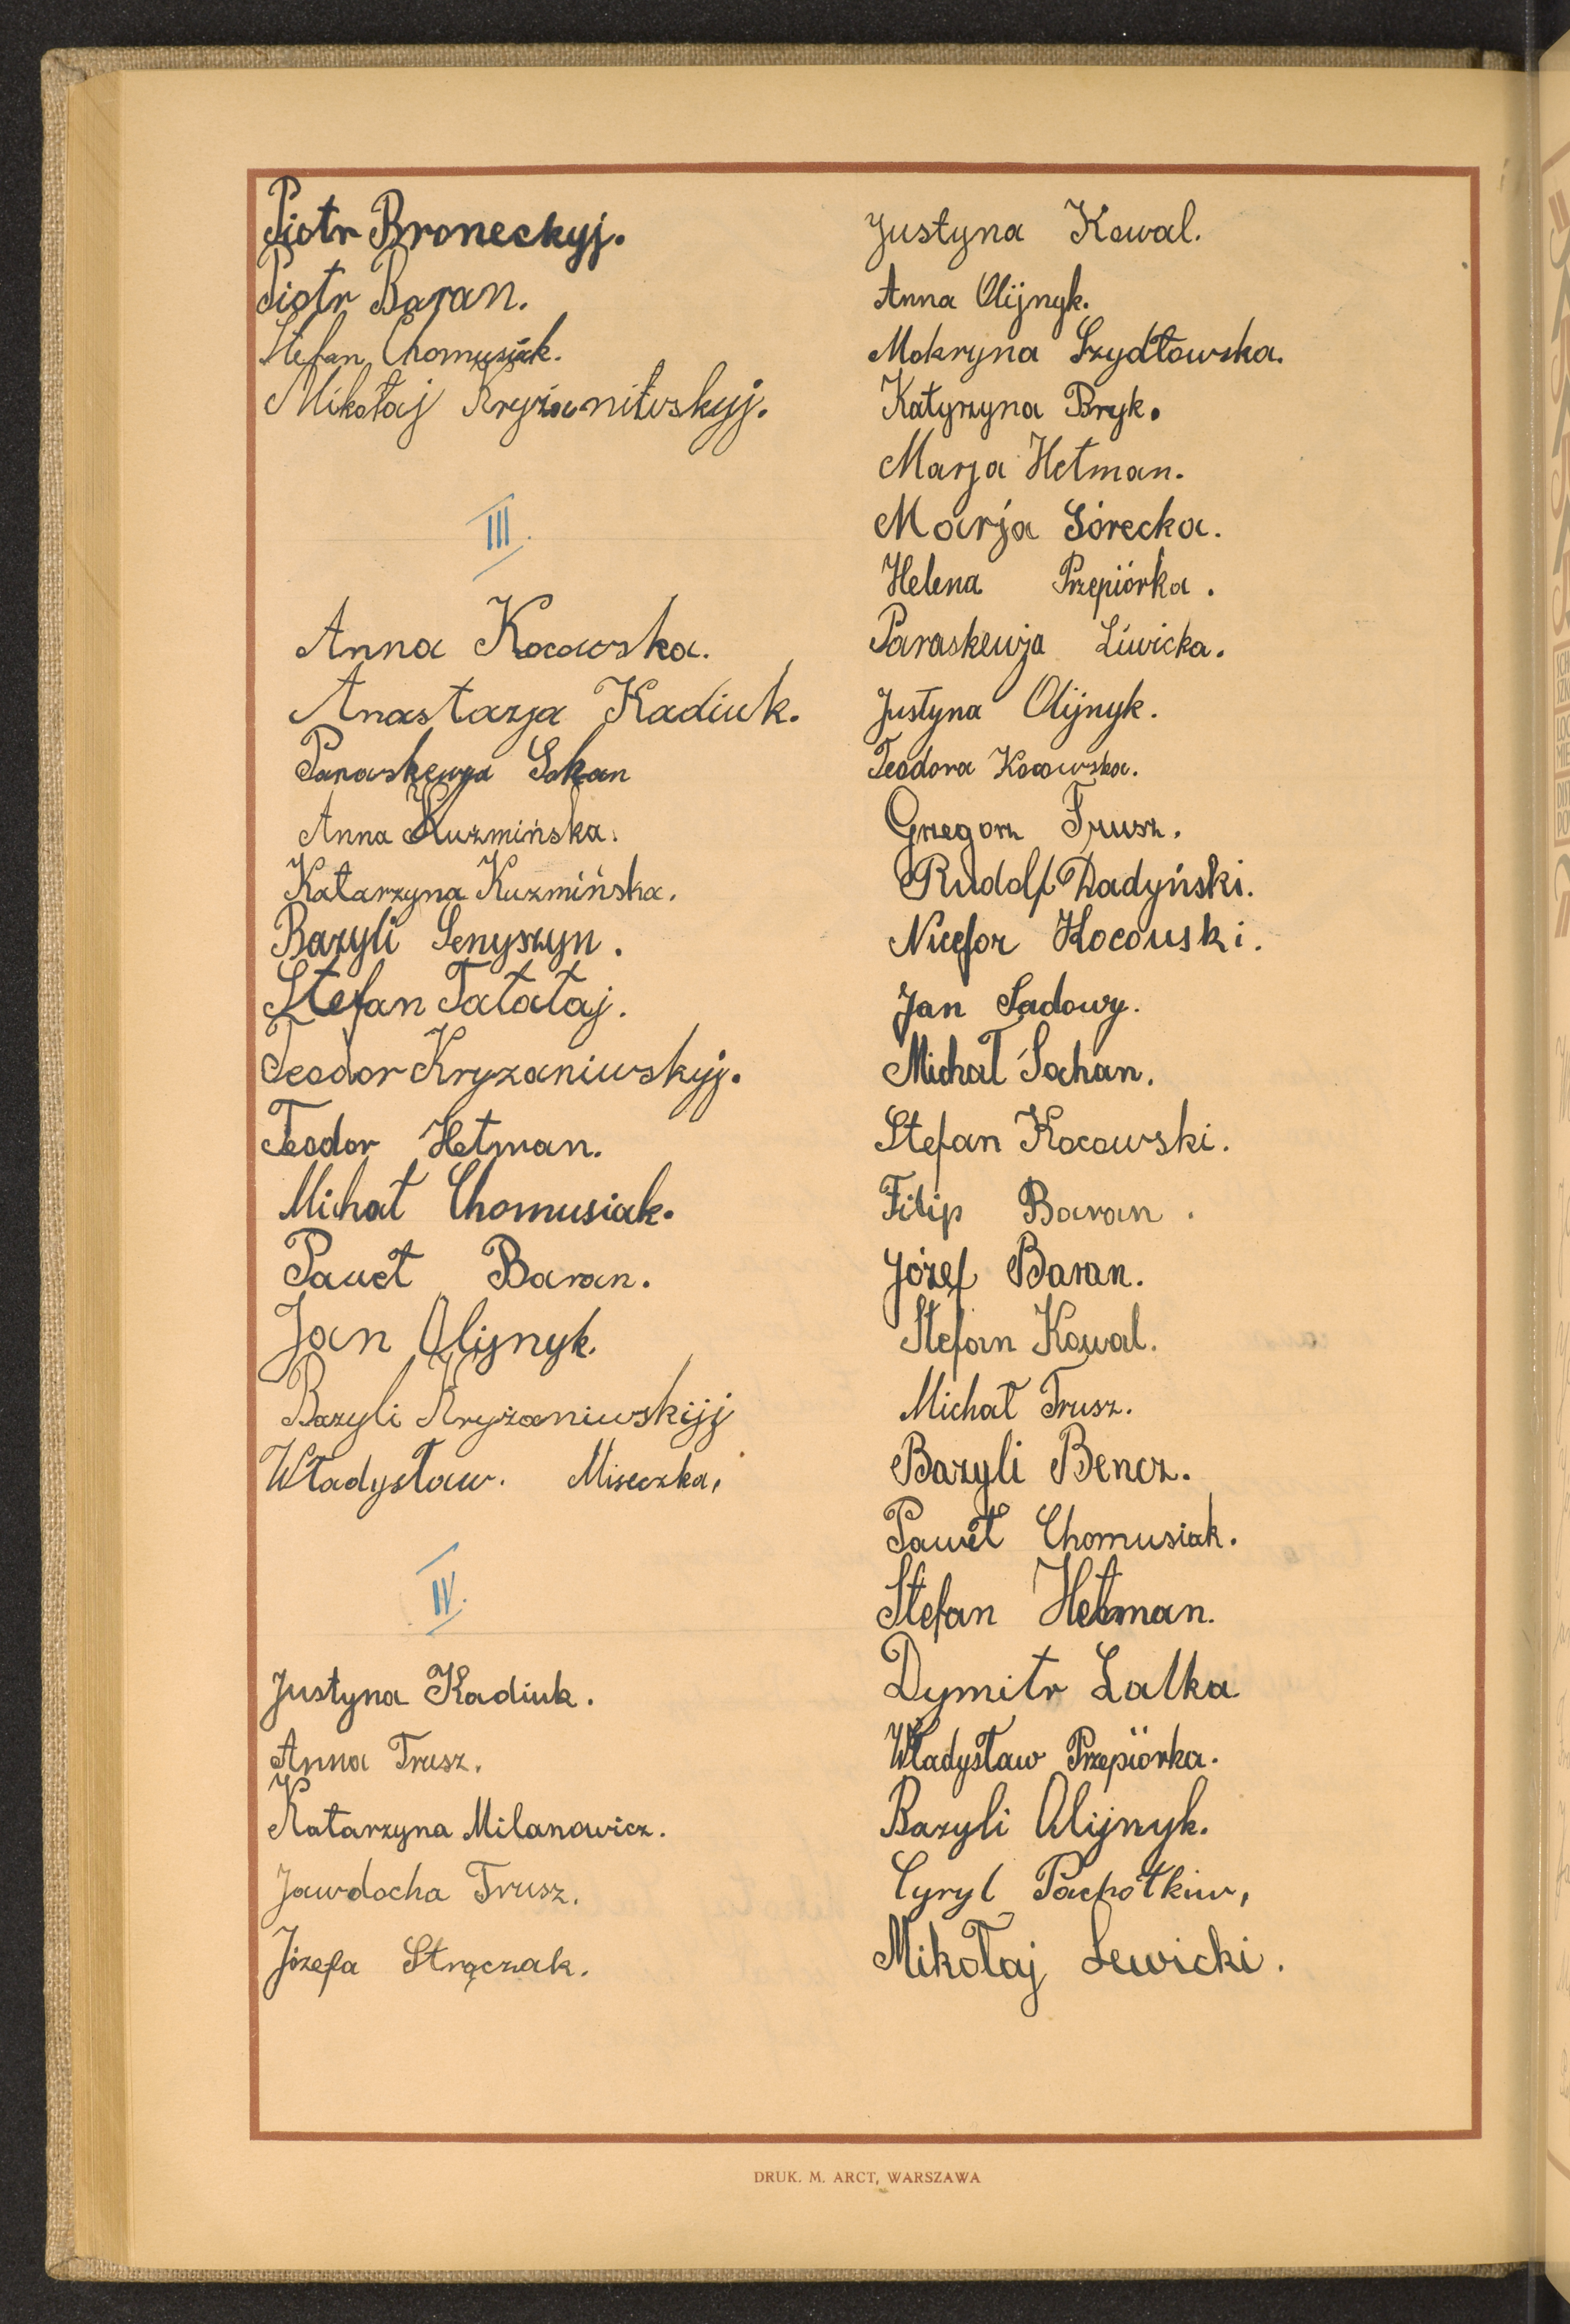 Piotr Broneckyj.
Piotr Baran.
Stefan Chomusiak.
Mikołaj Kryżaniwskyj.
III.
Anna Kocowska.
Anastazja Kadiuk.
Paraskewja Sokan
Anna Kuzmińska.
Katarzyna Kuzmińska.
Bazyli Senyszyn.
Stefan Tatataj.
Teodor Kryzaniwskyj.
Teodor Hetman.
Michał Chomusiak.
Paweł Baran.
Jan Olijnyk.
Bazyli Kryżaniwskijj
Władysław. Miseczka,
IV.
Justyna Kadiuk.
Anna Trusz.
Katarzyna Milanowicz.
Jawdocha Trusz.
Józefa Strączak.
Justyna Kowal.
Anna Olijnyk.
Mokryna Szydłowska.
Katyrzyna Bryk.
Marja Hetman.
Marja Górecka.
Helena Przepiórka.
Paraskewja Liwicka.
Justyna Olijnyk.
Teodora Kocowska.
Grzegorz Trusz.
Rudolf Dadyński.
Nicefor Kocowski.
Jan Sadowy.
Michał Sochan.
Stefan Kocowski.
Filip Baran.
Józef Baran.
Stefan Kowal.
Michał Trusz.
Bazyli Bencz.
Paweł Chomusiak.
Stefan Hetman.
Dymitr Lalka
Władysław Przepiórka.
Bazyli Olijnyk.
Cyryl Pachołkiw,
Mikołaj Lewicki.
DRUK. M. ARCT, WARSZAWA